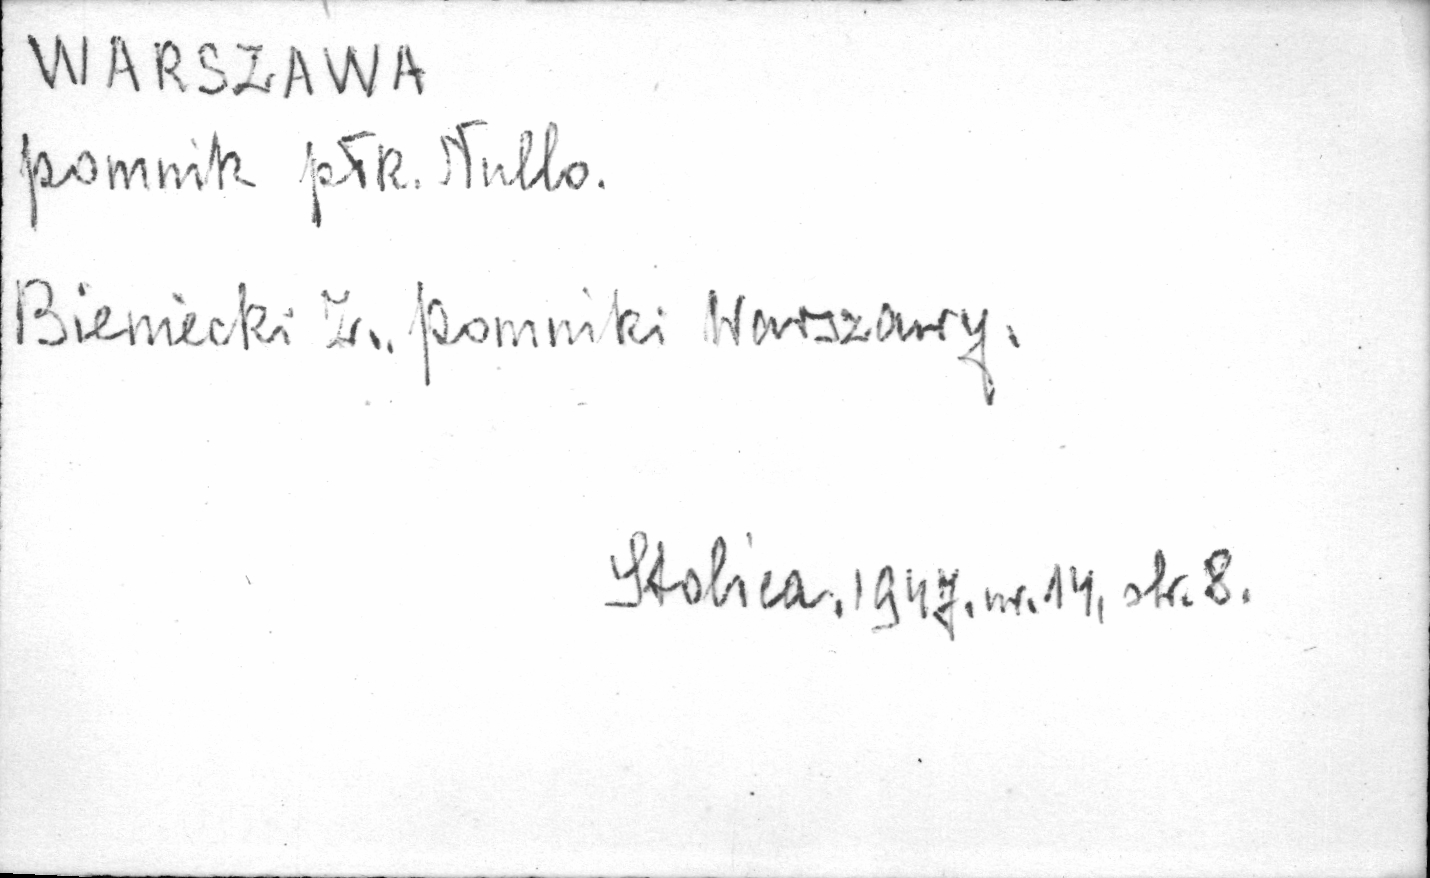 WARSZAWA
pomnik płk. Nullo.
Bieniecki Z., pomniki Warszawy.
Stolica. 1947. nr. 14, str. 8.